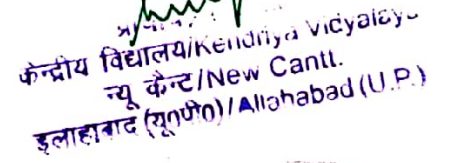 केन्द्रीय विद्यालय/Kendriya Vidyalaya
न्यू कैन्ट/New Cantt.
इलाहाबाद (यू०पी०)/Allahabad (U.P.)